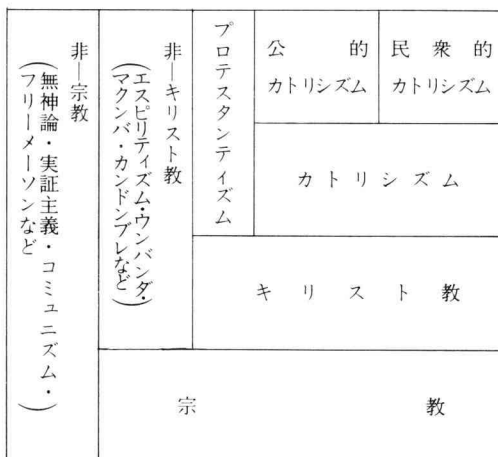 民衆的
カトリシズム
公的
カトリシズム
カトリシズム
プロテスタンティズム
キリスト教
非―キリスト教
(エスピリティズム・ウンバンダ・
マクンバ・カンドンブレなど)
宗教
非―宗教
(無神論・実証主義・コミュニズム・
フリーメーソンなど)